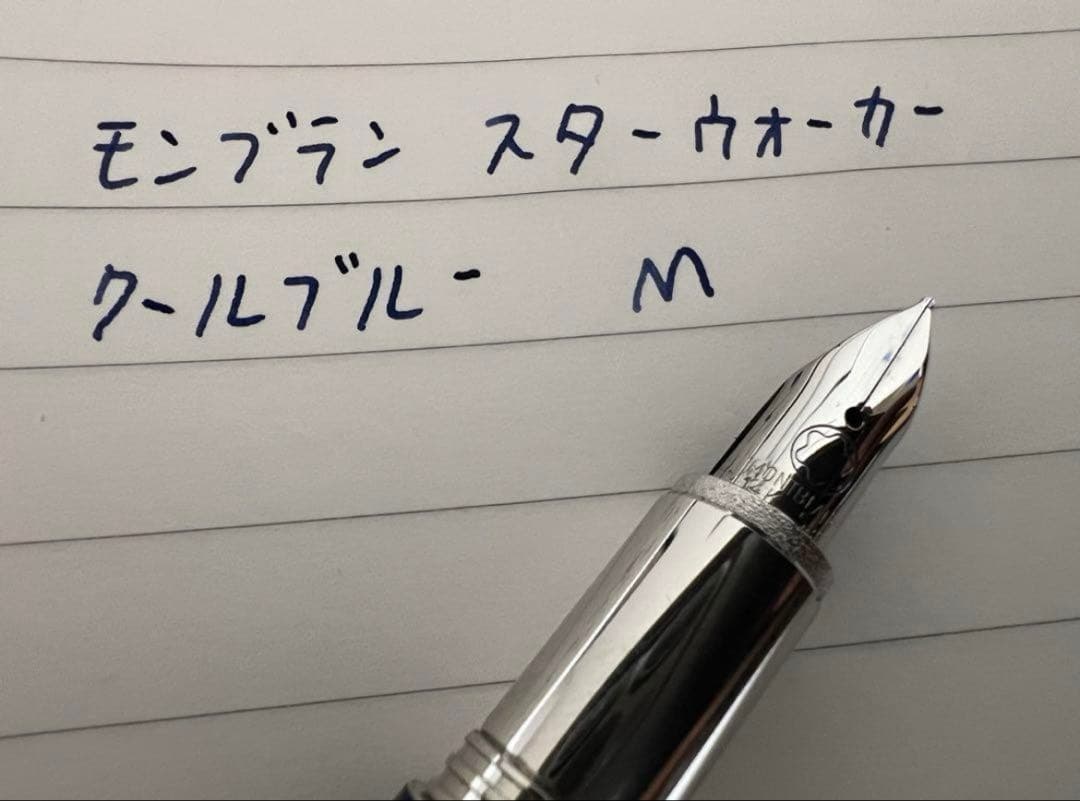 モンブラン スターウォーカー
クールブルー M
MONTBL